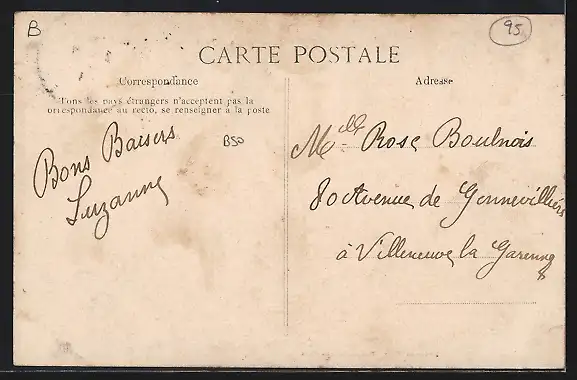 B
95
CARTE POSTALE
Correspondance
Tous les pays étrangers n'acceptent pas la
orrespondance au recto, se renseigner à la poste
B50
Bons Baisers
Suzanne
Adresse
Mlle Rose Boulnois
80 Avenue de Gennevilliers
à Villeneuve la Garenne